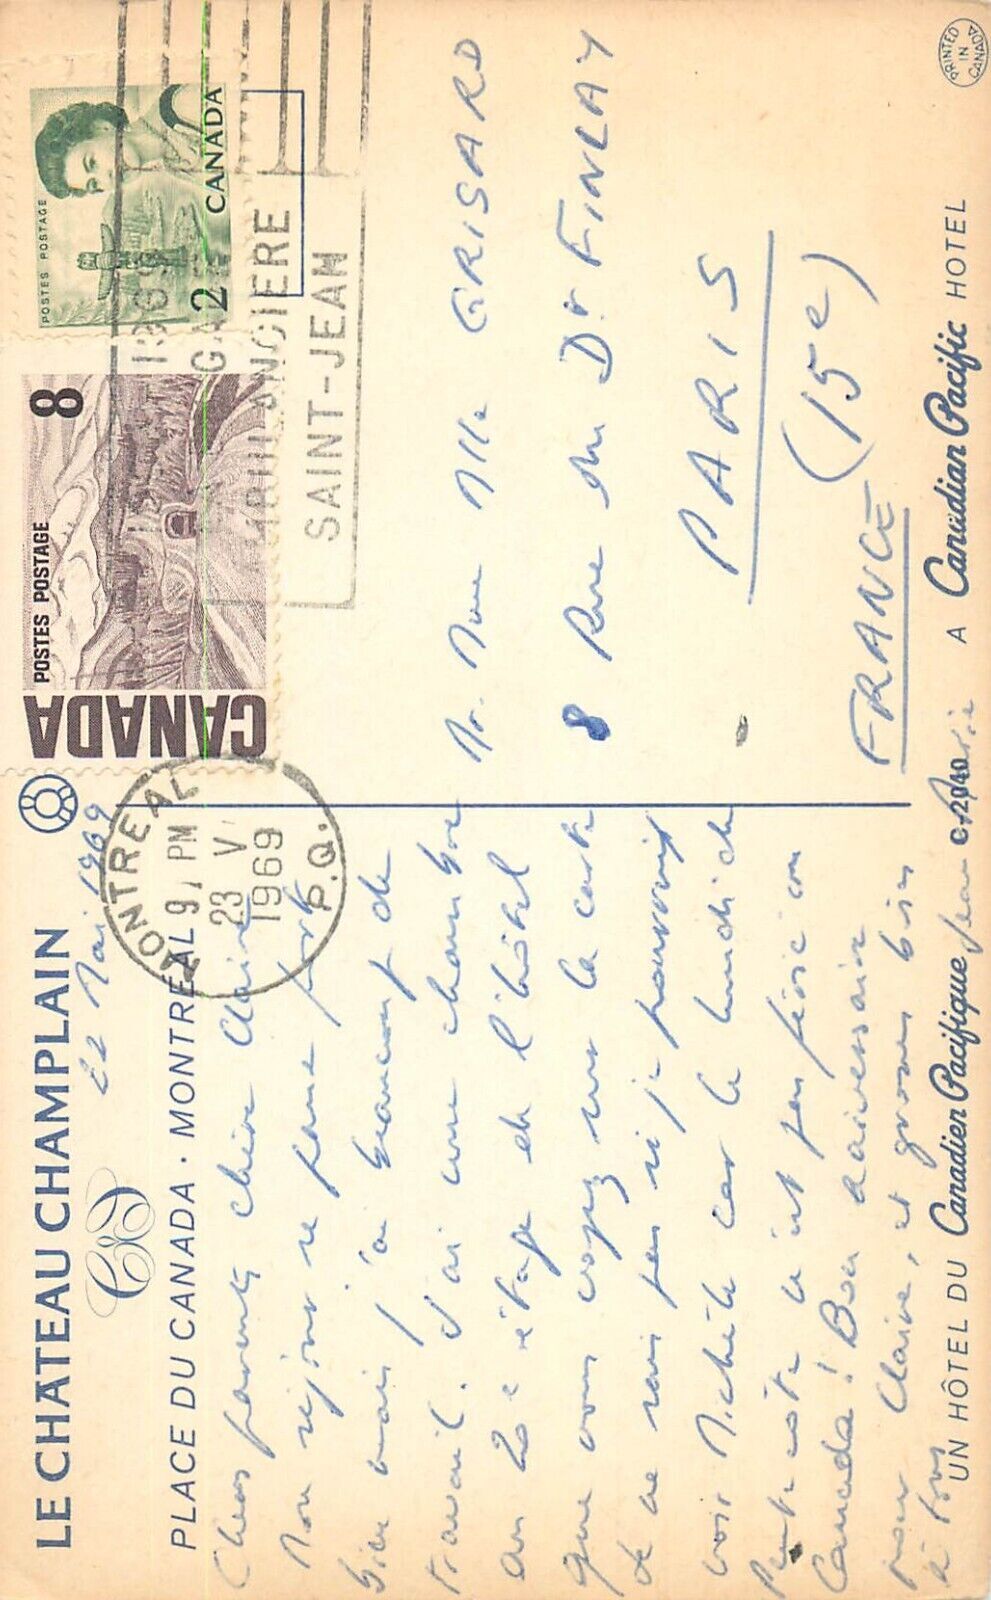 LE CHATEAU CHAMPLAIN
22 Mai 1969
PLACE DU CANADA · MONTREAL
Chers parents, chère Claire
Mon séjour se passe fort
bien mais j'ai beaucoup de
travail. J'ai une chambre
au 20e étage de l'hôtel
que vous voyez sur la carte
Je ne sais pas si je pourrais
voir Michèle car le lundi de
Pentecôte n'est pas férié au
Canada! Bon anniversaire
pour Claire, et grosses bises
à tous
Jean
UN HÔTEL DU Canadien Pacifique
A Canadian Pacific HOTEL
C.12040
POSTES POSTAGE
CANADA
8
POSTES POSTAGE
2 CANADA
MONTREAL
9 PM
23 V
1969
P.Q.
AMBULANCIERE
SAINT-JEAN
Mr. Mme Mlle GRISARD
8 Rue du Dr FINLAY
PARIS
(15e)
FRANCE
PRINTED IN CANADA